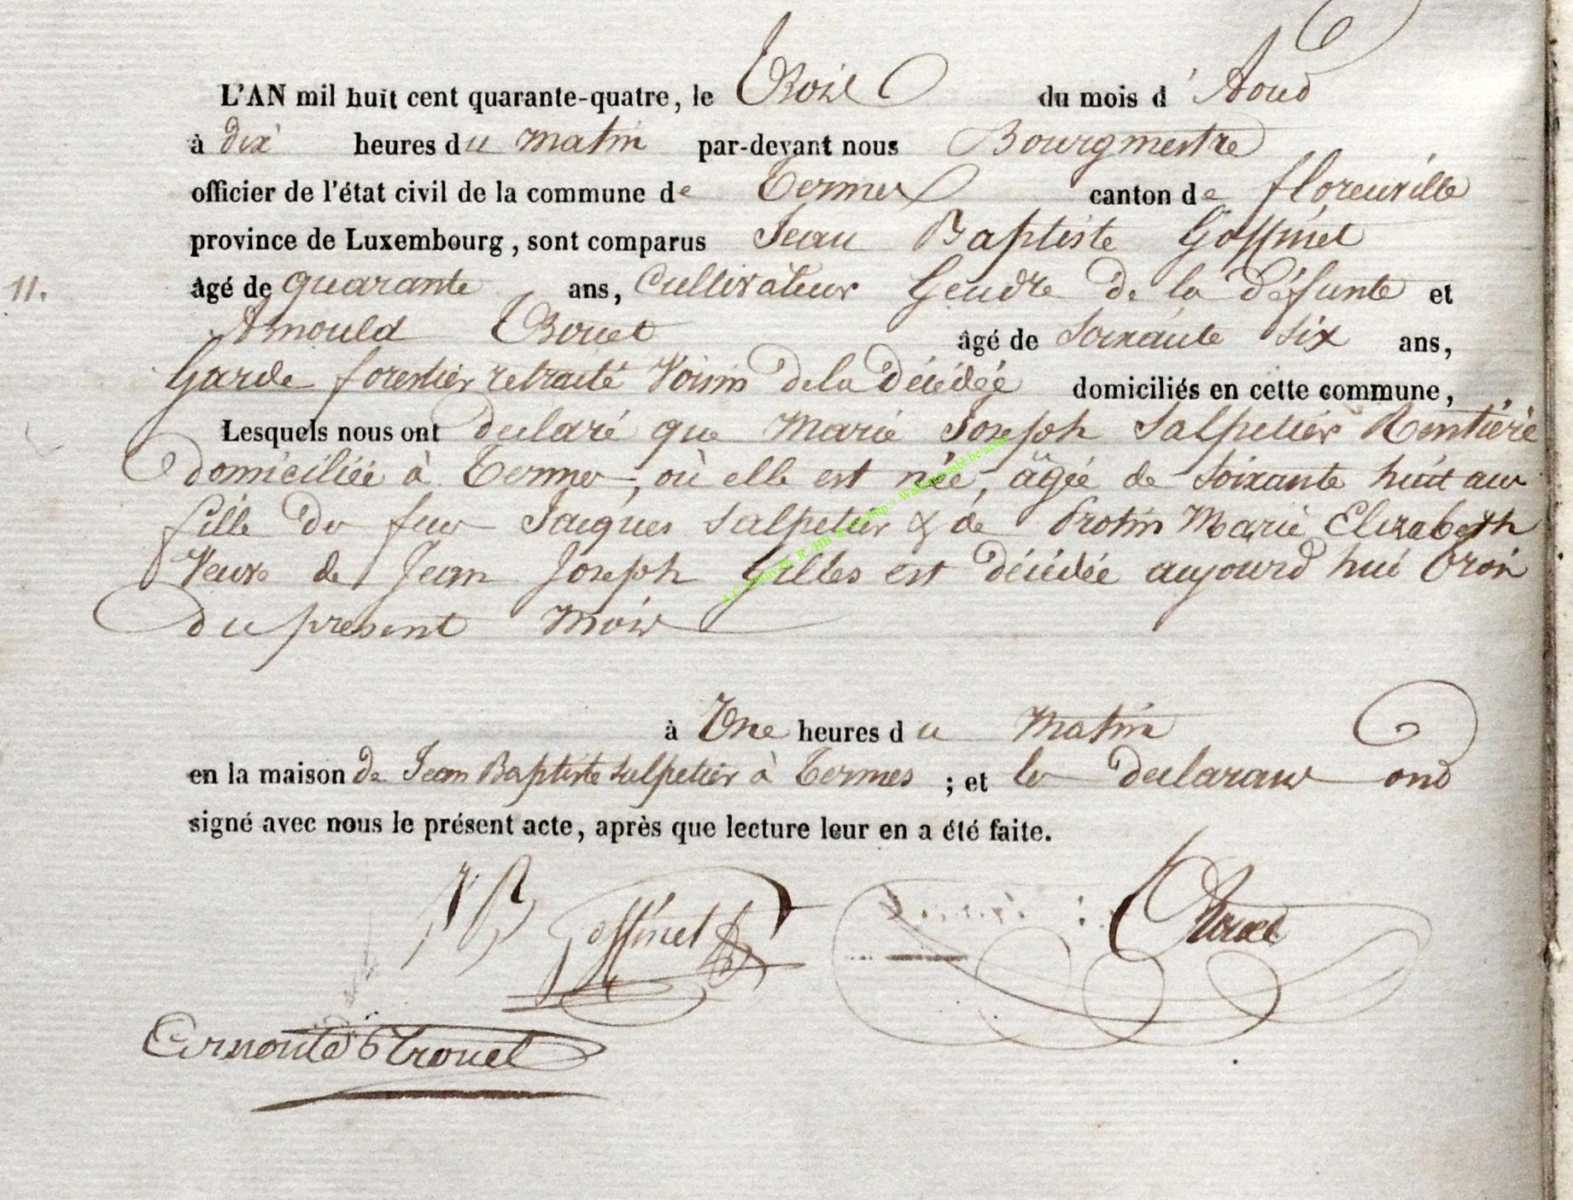 L'AN mil huit cent quarante-quatre, le Trois du mois d' Aout
à dix heures du matin par-devant nous Bourgmestre
officier de l'état civil de la commune de Termes canton de florenville
province de Luxembourg, sont comparus Jean Baptiste Goffinet
11. âgé de quarante ans, Cultivateur Gendre de la défunte et
Arnould Trouet âgé de soixante six ans,
Garde forestier retraité Voisin de la Décédée domiciliés en cette commune,
Lesquels nous ont declaré que Marie Joseph Salpetier Rentière
domiciliée à Termes, où elle est née, âgée de soixante huit ans
fille de feu Jacques Salpetier & de Protin Marie Elizabeth
Veuve de Jean Joseph Gilles est décédée aujourd hui trois
du present mois
à Une heures du Matin
en la maison de Jean Baptiste Salpetier à Termes ; et les declarans ont
signé avec nous le présent acte, après que lecture leur en a été faite.
JB Goffinet
Trouet